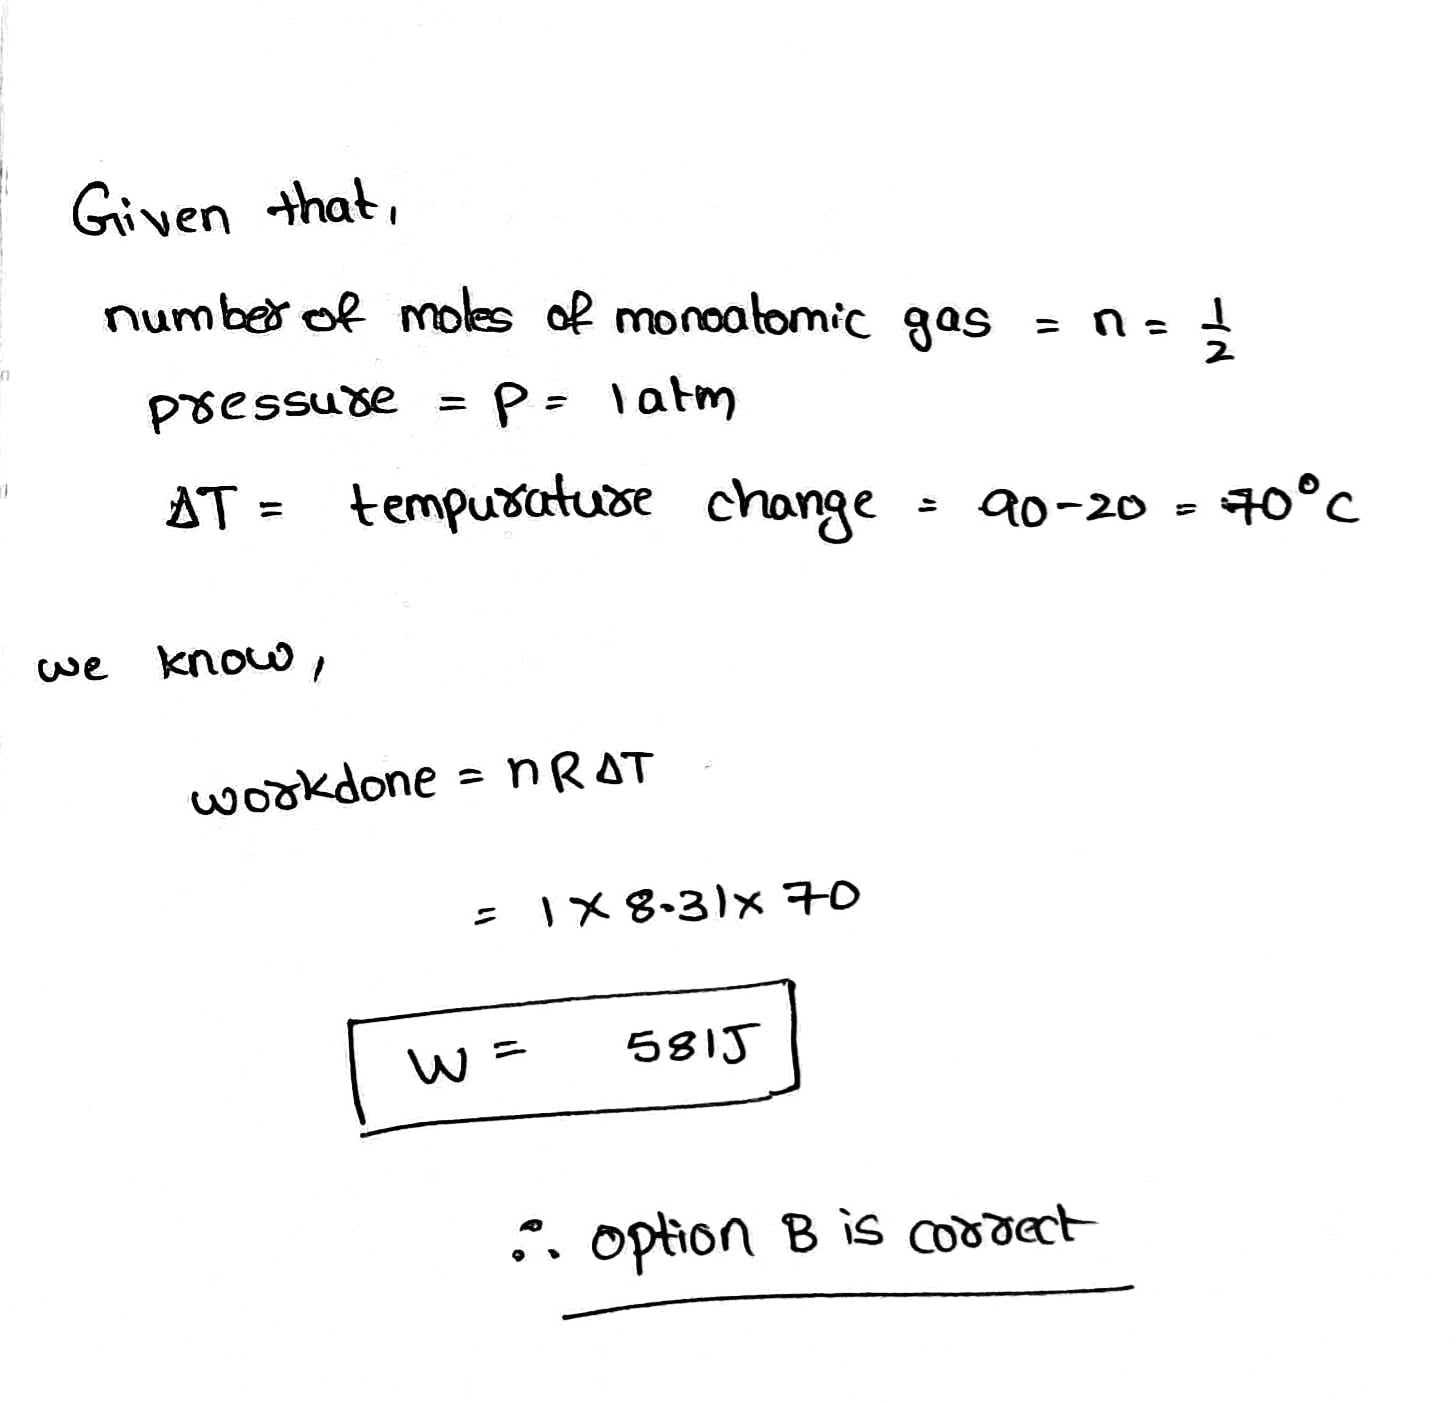 Given that,
number of moles of monoatomic gas = n = 1/2
pressure = P = 1 atm
ΔT = tempurature change = 90-20 = 70°C
we know,
workdone = nRΔT
= 1 × 8.31 × 70
W = 581J
∴ option B is correct